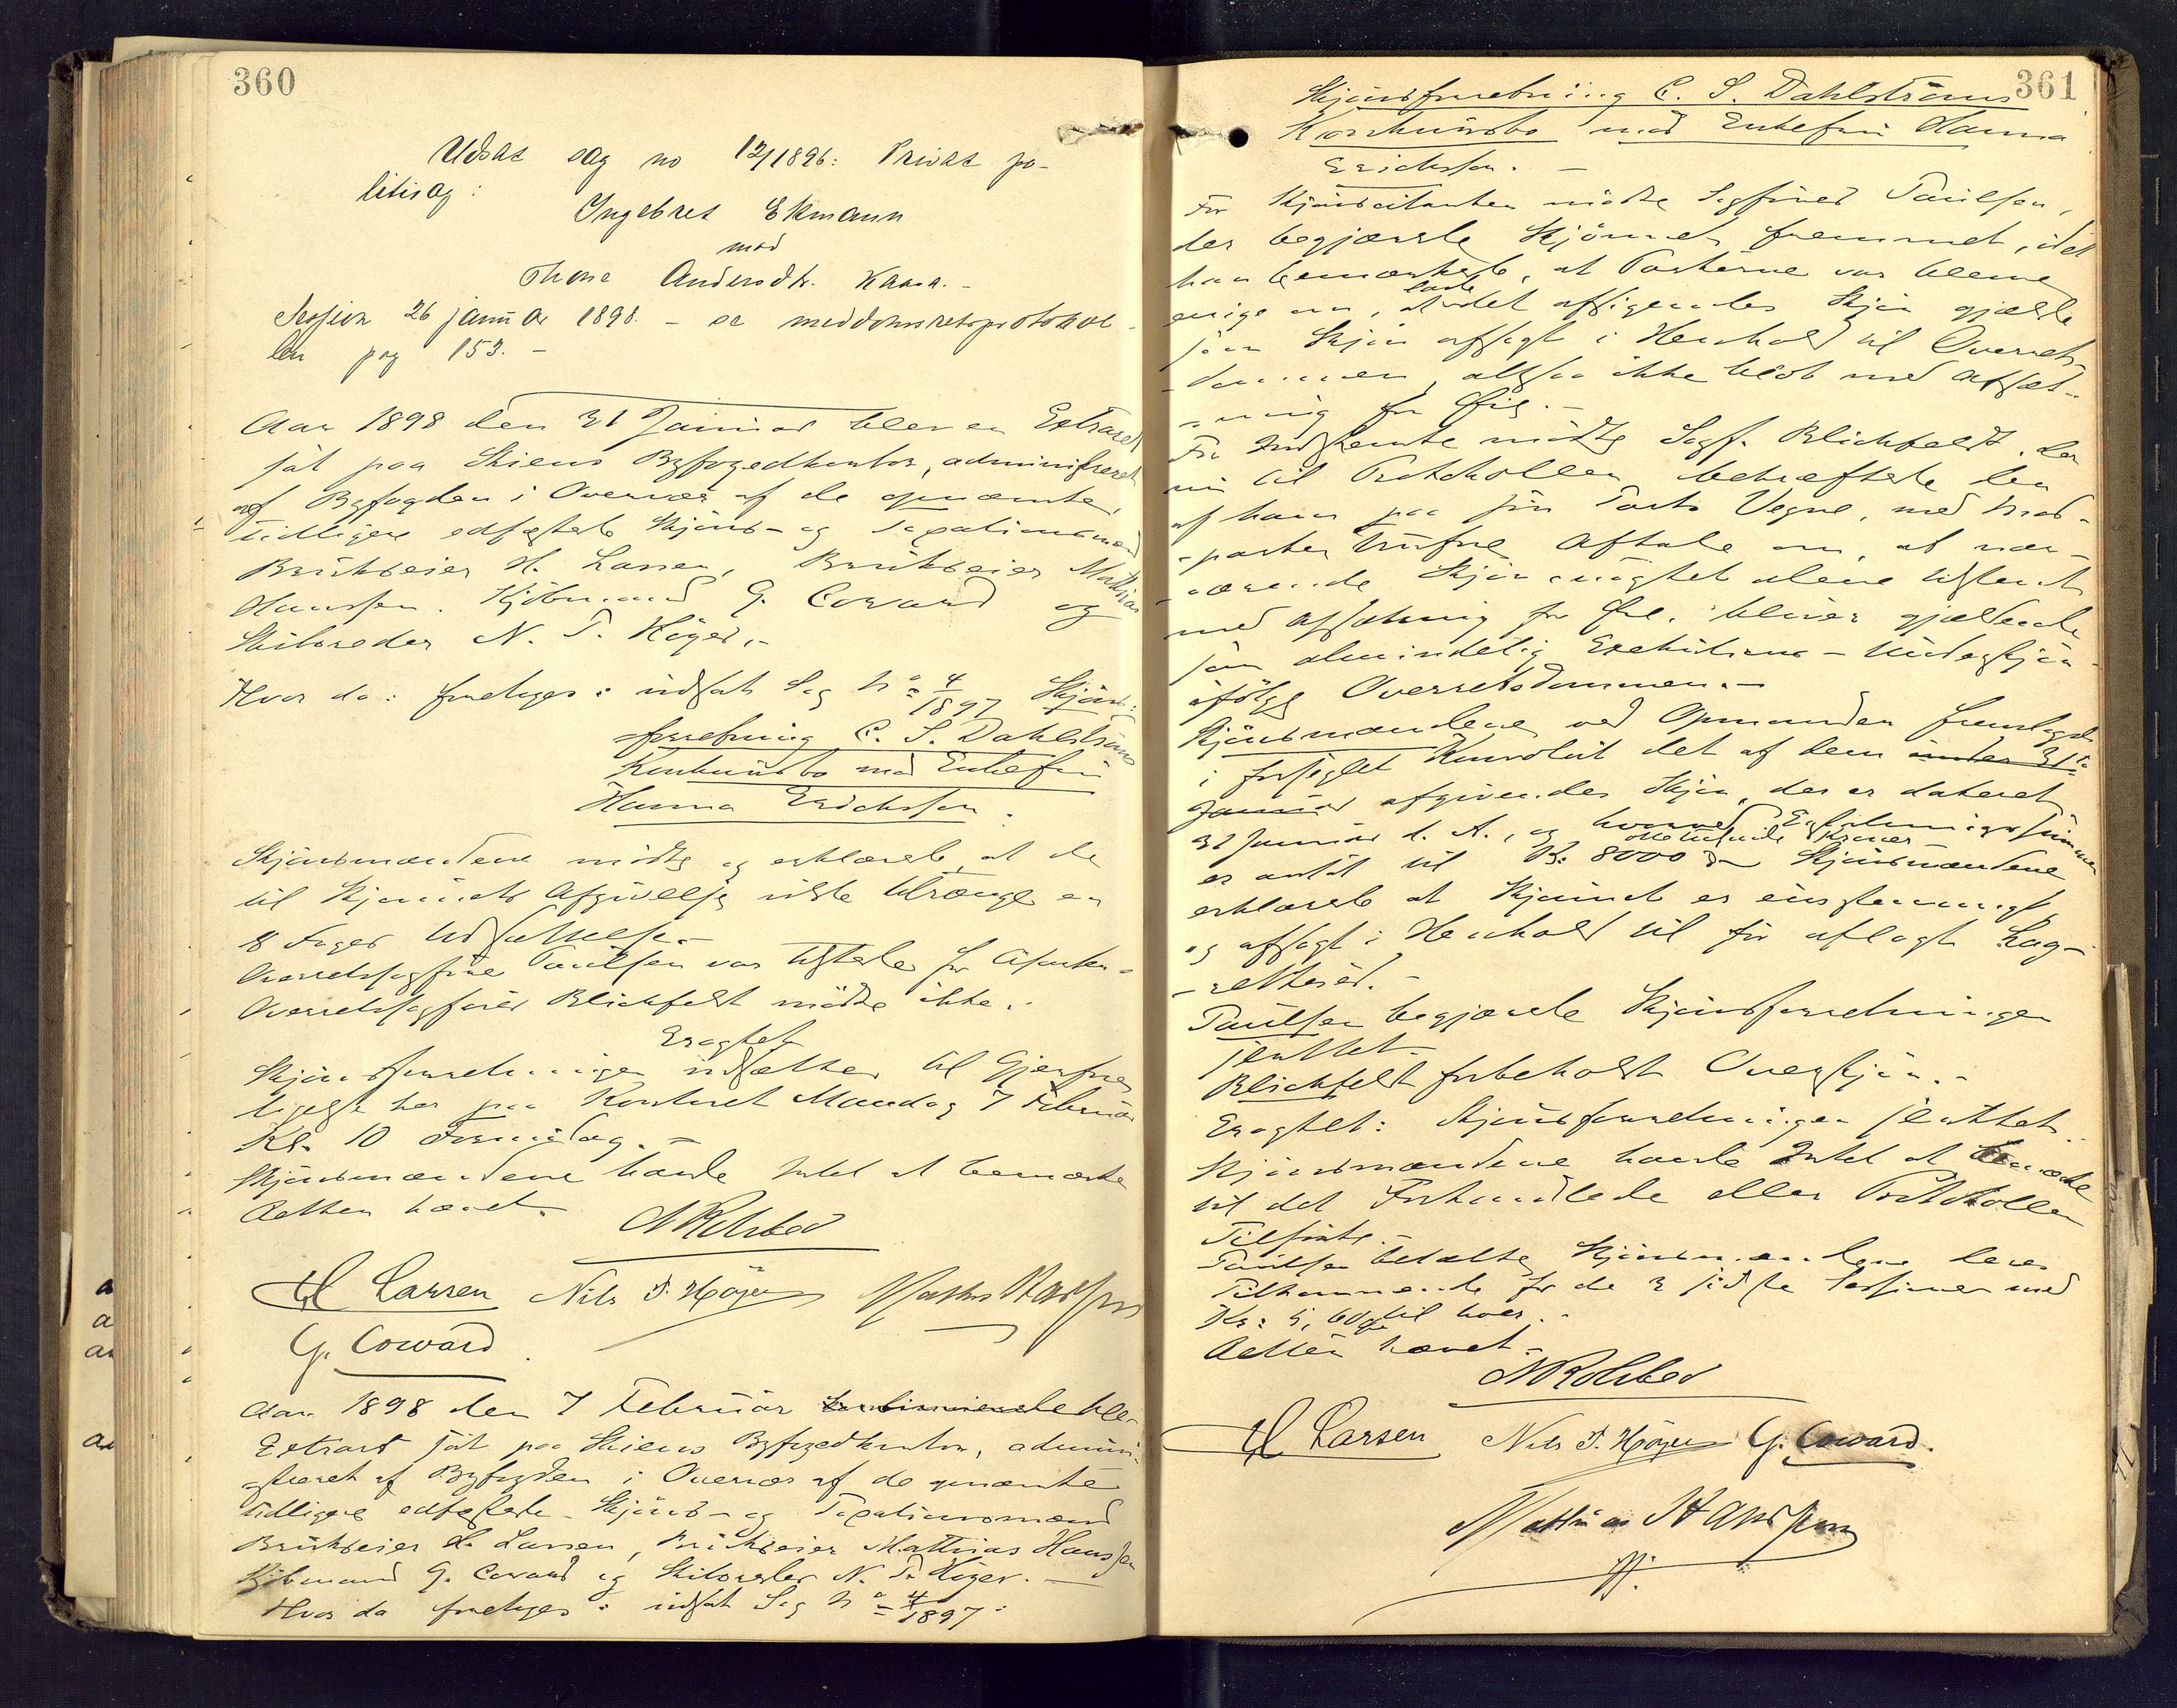 360
Udsat sag no 12/1896: Privat po-
litisag:
Ingebret Ekmann
mod
Thone Andersdtr. Kaasa.-
Session 26 januar 1898. - se meddomsretsprotokol-
len pag 153. -
Aar 1898 den 31 Januar blev en Extraret
sat paa Skiens Byfogedkontor, administreret
af Byfogden i Overvær af de opnævnte,
tidligere edfæstede Skjöns- og Taxationsmænd
Brukseier H. Larsen, Brukseier Mathias
Hanssen, Kjöbmand G. Coward og
Skibsreder N. T. Höyer.-
Hvor da: foretoges: udsat Sag No 4/1897 Skjöns-
forretning C. S. Dahlströms
Konkursbo mod Enkefru
Hanna Erichsen.
Skjönsmændene mödte og erklærede, at de
til Skjönnets Afgivelse vilde tiltrænge en
8 Dages Udsættelse.-
Overretssagförer Paulsen var tilstede for Citanten.-
Overretssagförer Blichfeldt mödte ikke.-
Eragtet
Skjönsforretningen udsættes til Gjenfore-
tagelse her paa Kontoret Mandag 7 Februar
Kl. 10 Formiddag.-
Skjönsmændene havde Intet at bemærke
Retten hævet.
H Larsen Nils T. Höyer Mathias Hanssen
G. Coward.
Aar 1898 den 7 Februar blev
Extraret sat paa Skiens Byfogedkontor, admini-
streret af Byfogden i Overvær af de opnævnte
tidligere edfæstede Skjöns- og Taxationsmænd
Brukseier H. Larsen, Brukseier Mathias Hanssen
Kjöbmand G. Coward og Skibsreder N. T. Höyer.-
Hvor da foretoges: udsat Sag No 4/1897:
361
Skjönsforretning C. S. Dahlströms
Konkursbo mod Enkefru Hanna
Erichsen.-
For Skjönscitanten mödte Sagförer Paulsen,
der begjærede Skjönnet fremmet, idet
han bemærkede, at Parterne var blevne
enige om, at lade det afsigendes Skjön gjælde
som Skjön afsagt i Henhold til Overrets-
dommen, altsaa ikke blot med Afsæt-
ning for Öie.-
For Indstevnte mödte Sagf. Blichfeldt, der
nu til Protokollen bekræftede den
af ham paa sin Parts Vegne, med Mod-
parten trufne Aftale om, at nær-
værende Skjön
med Afsætning for Öie, bliver gjældende
som almindelig Exekutions- Underskjön
ifölge Overretsdommen.-
Skjönsmændene ved Opmanden fremlagde
i forseglet Konvolut det af dem under 31te
Januar afgivendes Skjön, der er dateret
31 Januar d. A., og hvorved Erstatningssummen
er ansat til Kr. 8000 otte tusinde Kroner. Skjönsmændene
erklærede at Skjönnet er enstemmigt
og afsagt i Henhold til för aflagt Lag-
rettesed.-
Paulsen begjærede Skjönsforretningen
sluttet.-
Blichfeldt forbeholdt Overskjön.-
Eragtet: Skjönsforretningen sluttet.
Skjönsmændene havde Intet at bemærke
til det Forhandlede eller Protokollen
Tilförte.-
Paulsen betalte Skjönsmændene deres
Tilkommende for de 2 sidste Sessioner med
Kr: 5,60 til hver.-
Retten hævet.-
H Larsen Nils T. Höyer G. Coward.
Mathias Hanssen